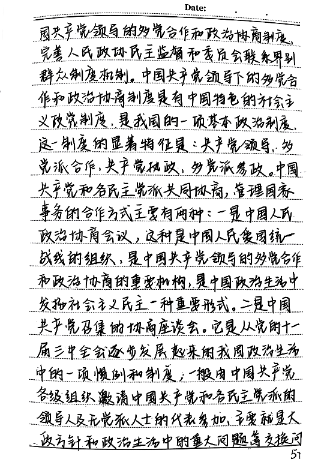 Date:
国共产党领导的多党合作和政治协商制度,
完善人民政协民主监督和委员会联系界别
群众制度机制。中国共产党领导下的多党合
作和政治协商制度是有中国特色的社会主
义政党制度,是我国的一项基本政治制度,
这一制度的显著特征是:共产党领导、多
党派合作,共产党执政,多党派参政。中国
共产党和各民主党派共同协商,管理国家
事务的合作方式主要有两种:一是中国人民
政治协商会议,这种是中国人民爱国统一
战线的组织,是中国共产党领导的多党合作
和政治协商的重要机构,是中国政治生活中
发扬社会主义民主一种重要形式。二是中国
共产党召集的协商座谈会。它是从党的十一
届三中全会逐步发展起来的我国政治生活
中的一项惯例和制度,一般由中国共产党
各级组织邀请中国共产党和各民主党派的
领导人及无党派人士的代表参加,主要就重大
大政方针和政治生活中的重大问题等交换间
57